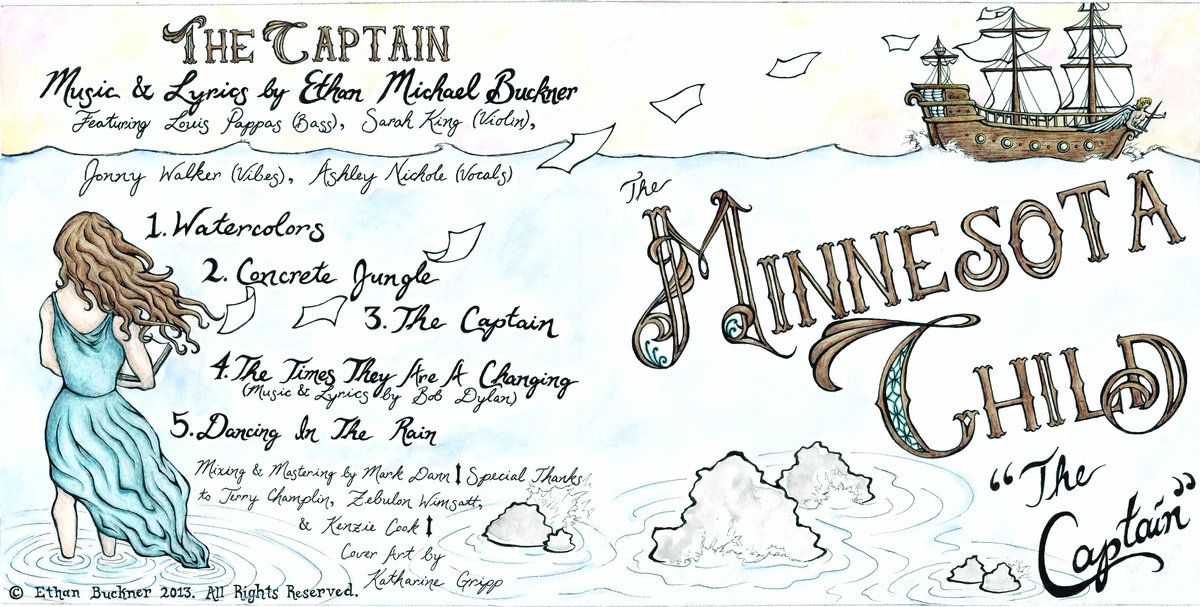 The Captain
Music & Lyrics by Ethan Michael Buckner
Featuring Louis Pappas (Bass), Sarah King (Violin),
Jonny Walker (Vibes), Ashley Nichole (Vocals)
1. Watercolors
2. Concrete Jungle
3. The Captain
4. The Times They Are A Changing
(Music & Lyrics by Bob Dylan)
5. Dancing In The Rain
Mixing & Mastering by Mark Dann | Special Thanks
to Terry Champlin, Zebulon Wimsatt,
& Kenzie Cook |
Cover Art by
Katharine Gripp
© Ethan Buckner 2013. All Rights Reserved.
The
Minnesota
Child
"The
Captain"